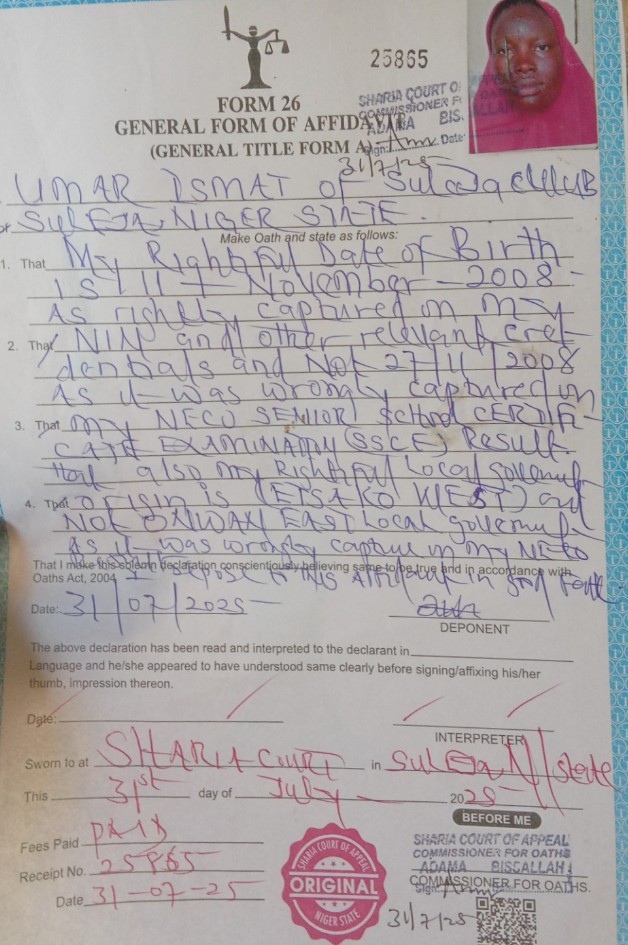 25865
SHARIA COURT OF
COMMISSIONER F
ADAMA BIS.
Sign: Date:
31/7/25
FORM 26
GENERAL FORM OF AFFIDAVIT
(GENERAL TITLE FORM A)
UMAR ISMAT of Suleja CLUB
or SULEJA, NIGER STATE.
Make Oath and state as follows:
1. That My Rightful Date of Birth
is 11 - November - 2008 -
As rightly captured on my
2. That NIN and other relevant cre-
dentials and Not 27/11/2008
As it was wrongly captured on
3. That my NECO SENIOR School CERTIFI-
CATE EXAMINATION (SSCE) Result.
that also my Rightful Local Government
4. That origin is (ETSAKO WEST) and
Not EAST Local government
As it was wrongly capture in my NECO
That I make this solemn declaration conscientiously believing same to be true and in accordance with
Oaths Act, 2004 I depose to this Affidavit in good faith.
Date: 31/07/2025
DEPONENT
The above declaration has been read and interpreted to the declarant in
Language and he/she appeared to have understood same clearly before signing/affixing his/her
thumb, impression thereon.
Date:
INTERPRETER
Sworn to at SHARIA COURT in Suleja N/State
This 31st day of July 2025
BEFORE ME
Fees Paid PAID
Receipt No. 25865
Date 31-07-25
SHARIA COURT OF APPEAL
ORIGINAL
NIGER STATE
SHARIA COURT OF APPEAL
COMMISSIONER FOR OATHS
ADAMA BISCALLAH
COMMISSIONER FOR OATHS.
Sign:
31/7/25